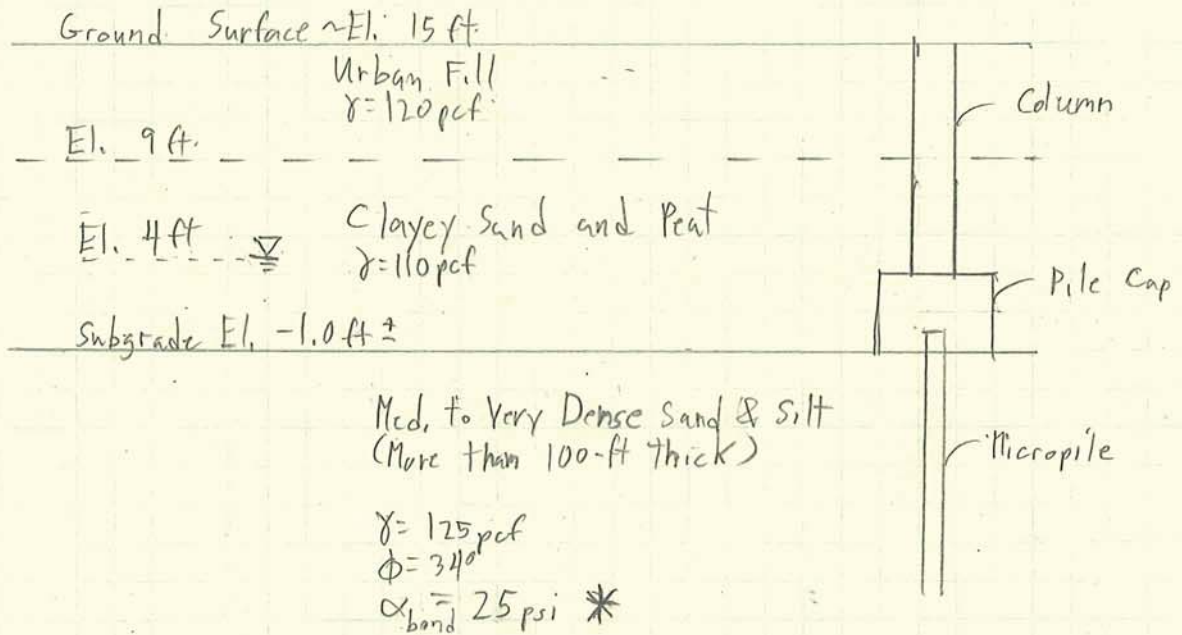 Ground Surface ~El. 15 ft.
Urban Fill
γ=120 pcf
Column
El. 9 ft.
El. 4 ft
Clayey Sand and Peat
γ=110 pcf
Pile Cap
Subgrade El. -1.0 ft ±
Med. to Very Dense Sand & Silt
(More than 100-ft thick)
Micropile
γ= 125 pcf
Φ= 34°
αbond = 25 psi *